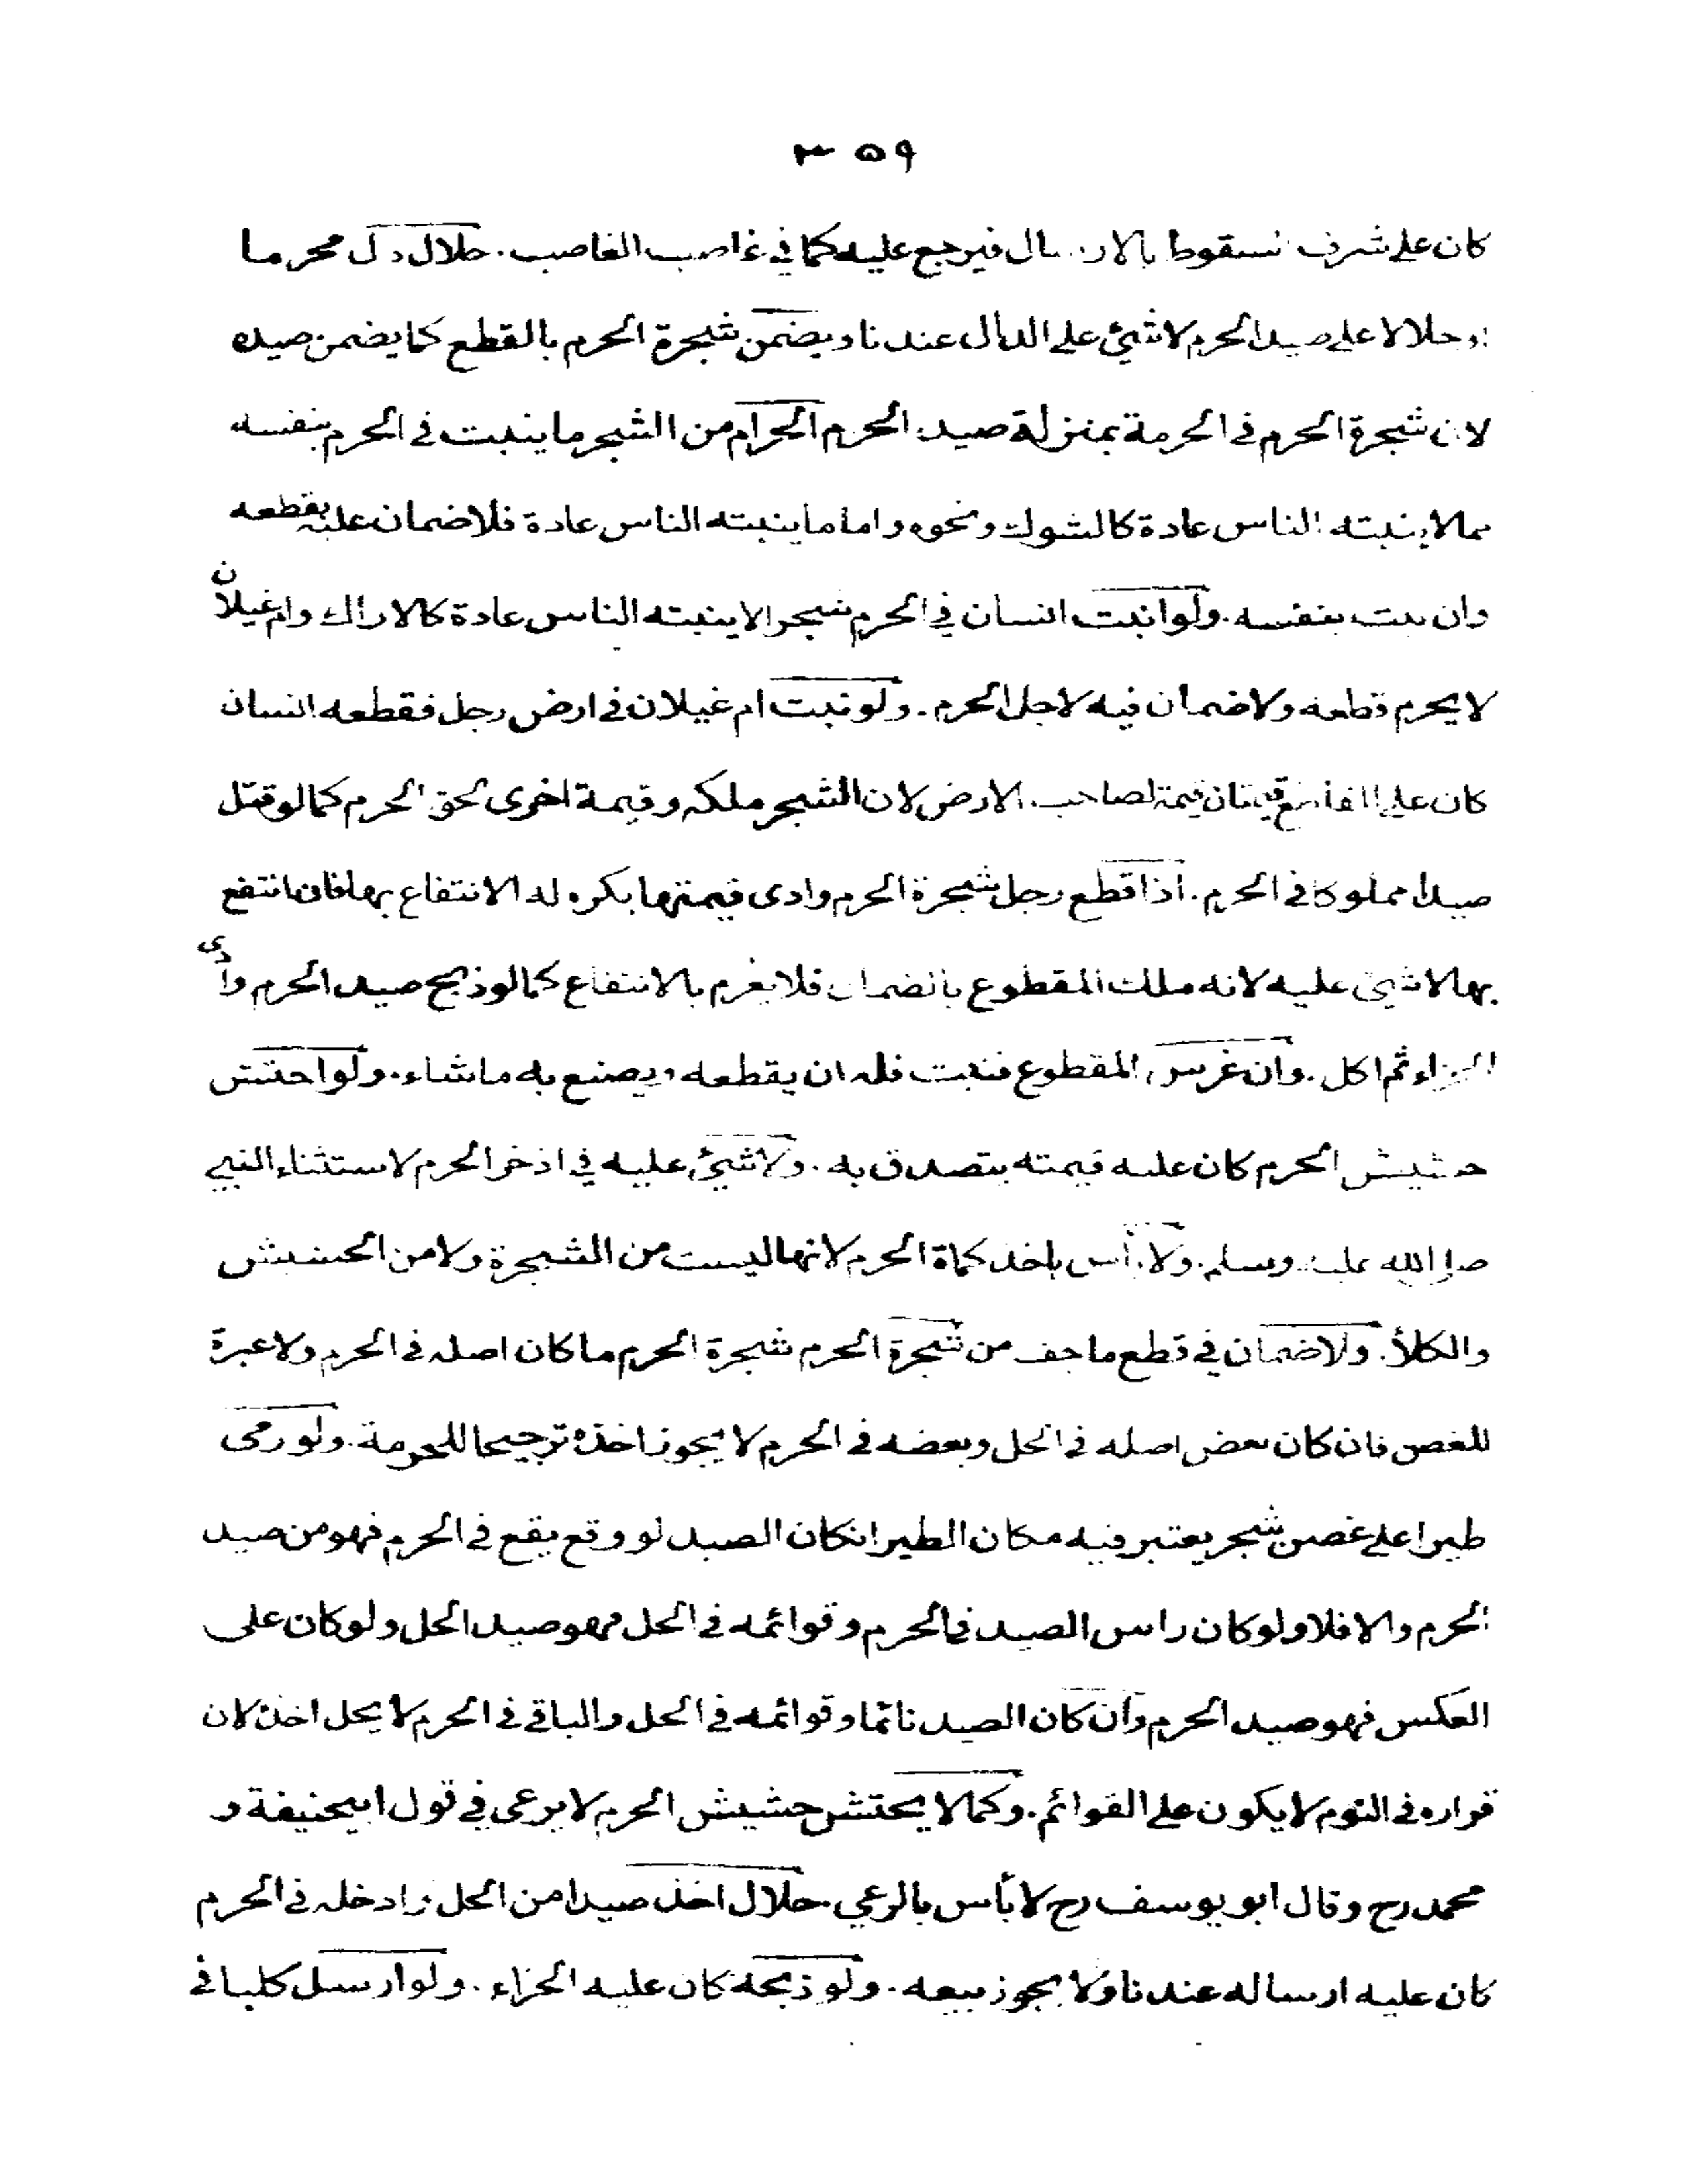 ٣٥٩
كان على شرف السقوط بالارسال فيرجع عليه كما في غاصب الغاصب . حلال دل محرما
او حلالا على صيد الحرم لا شئ على الدال عندنا ويضمن شجرة الحرم بالقطع كما يضمن صيده
لان شجرة الحرم في الحرمة بمنزلة صيد الحرم الحرام من الشجر ما ينبت في الحرم بنفسه
مما لا ينبته الناس عادة كالشوك ونحوه واما ما ينبته الناس عادة فلا ضمان عليه بقطعه
وان نبت بنفسه . ولو انبت انسان في الحرم شجرا لا ينبته الناس عادة كالاراك وام غيلان
لا يحرم قطعه ولا ضمان فيه لاجل الحرم . ولو نبت ام غيلان في ارض رجل فقطعه انسان
كان على القاطع قيمتان قيمة لصاحب الارض لان الشجر ملكه وقيمة اخرى لحق الحرم كما لو قتل
صيدا مملوكا في الحرم . اذا قطع رجل شجرة الحرم وادى قيمتها يكره له الانتفاع بها فان انتفع
بها لا شئ عليه لانه ملك المقطوع بالضمان فلا يغرم بالانتفاع كما لو ذبح صيد الحرم وادى
الجزاء ثم اكل . وان غرس المقطوع فنبت فله ان يقطعه ويصنع به ما شاء . ولو احتش
حشيش الحرم كان عليه قيمته يتصدق به . ولا شئ عليه في اذخر الحرم لاستثناء النبي
صلى الله عليه وسلم . ولا بأس باخذ كماة الحرم لانها ليست من الشجرة ولا من الحشيش
والكلأ . ولا ضمان في قطع ما جف من شجرة الحرم شجرة الحرم ما كان اصله في الحرم ولا عبرة
للغصن فان كان بعض اصله في الحل وبعضه في الحرم لا يجوز اخذه ترجيحا للحرمة . ولو رمى
طيرا على غصن شجر يعتبر فيه مكان الطير انكان الصيد لو وقع يقع في الحرم فهو من صيد
الحرم والا فلا ولو كان راس الصيد في الحرم وقوائمه في الحل فهو صيد الحل ولو كان على
العكس فهو صيد الحرم وان كان الصيد نائما وقوائمه في الحل والباقي في الحرم لا يحل اخذه لان
قراره في النوم لا يكون على القوائم . وكما لا يحتش حشيش الحرم لا يرعى في قول ابيحنيفة و
محمد رح وقال ابو يوسف رح لا بأس بالرعي . حلال اخذ صيدا من الحل وادخله في الحرم
كان عليه ارساله عندنا ولا يجوز بيعه . ولو ذبحه كان عليه الجزاء . ولو ارسل كلبا في